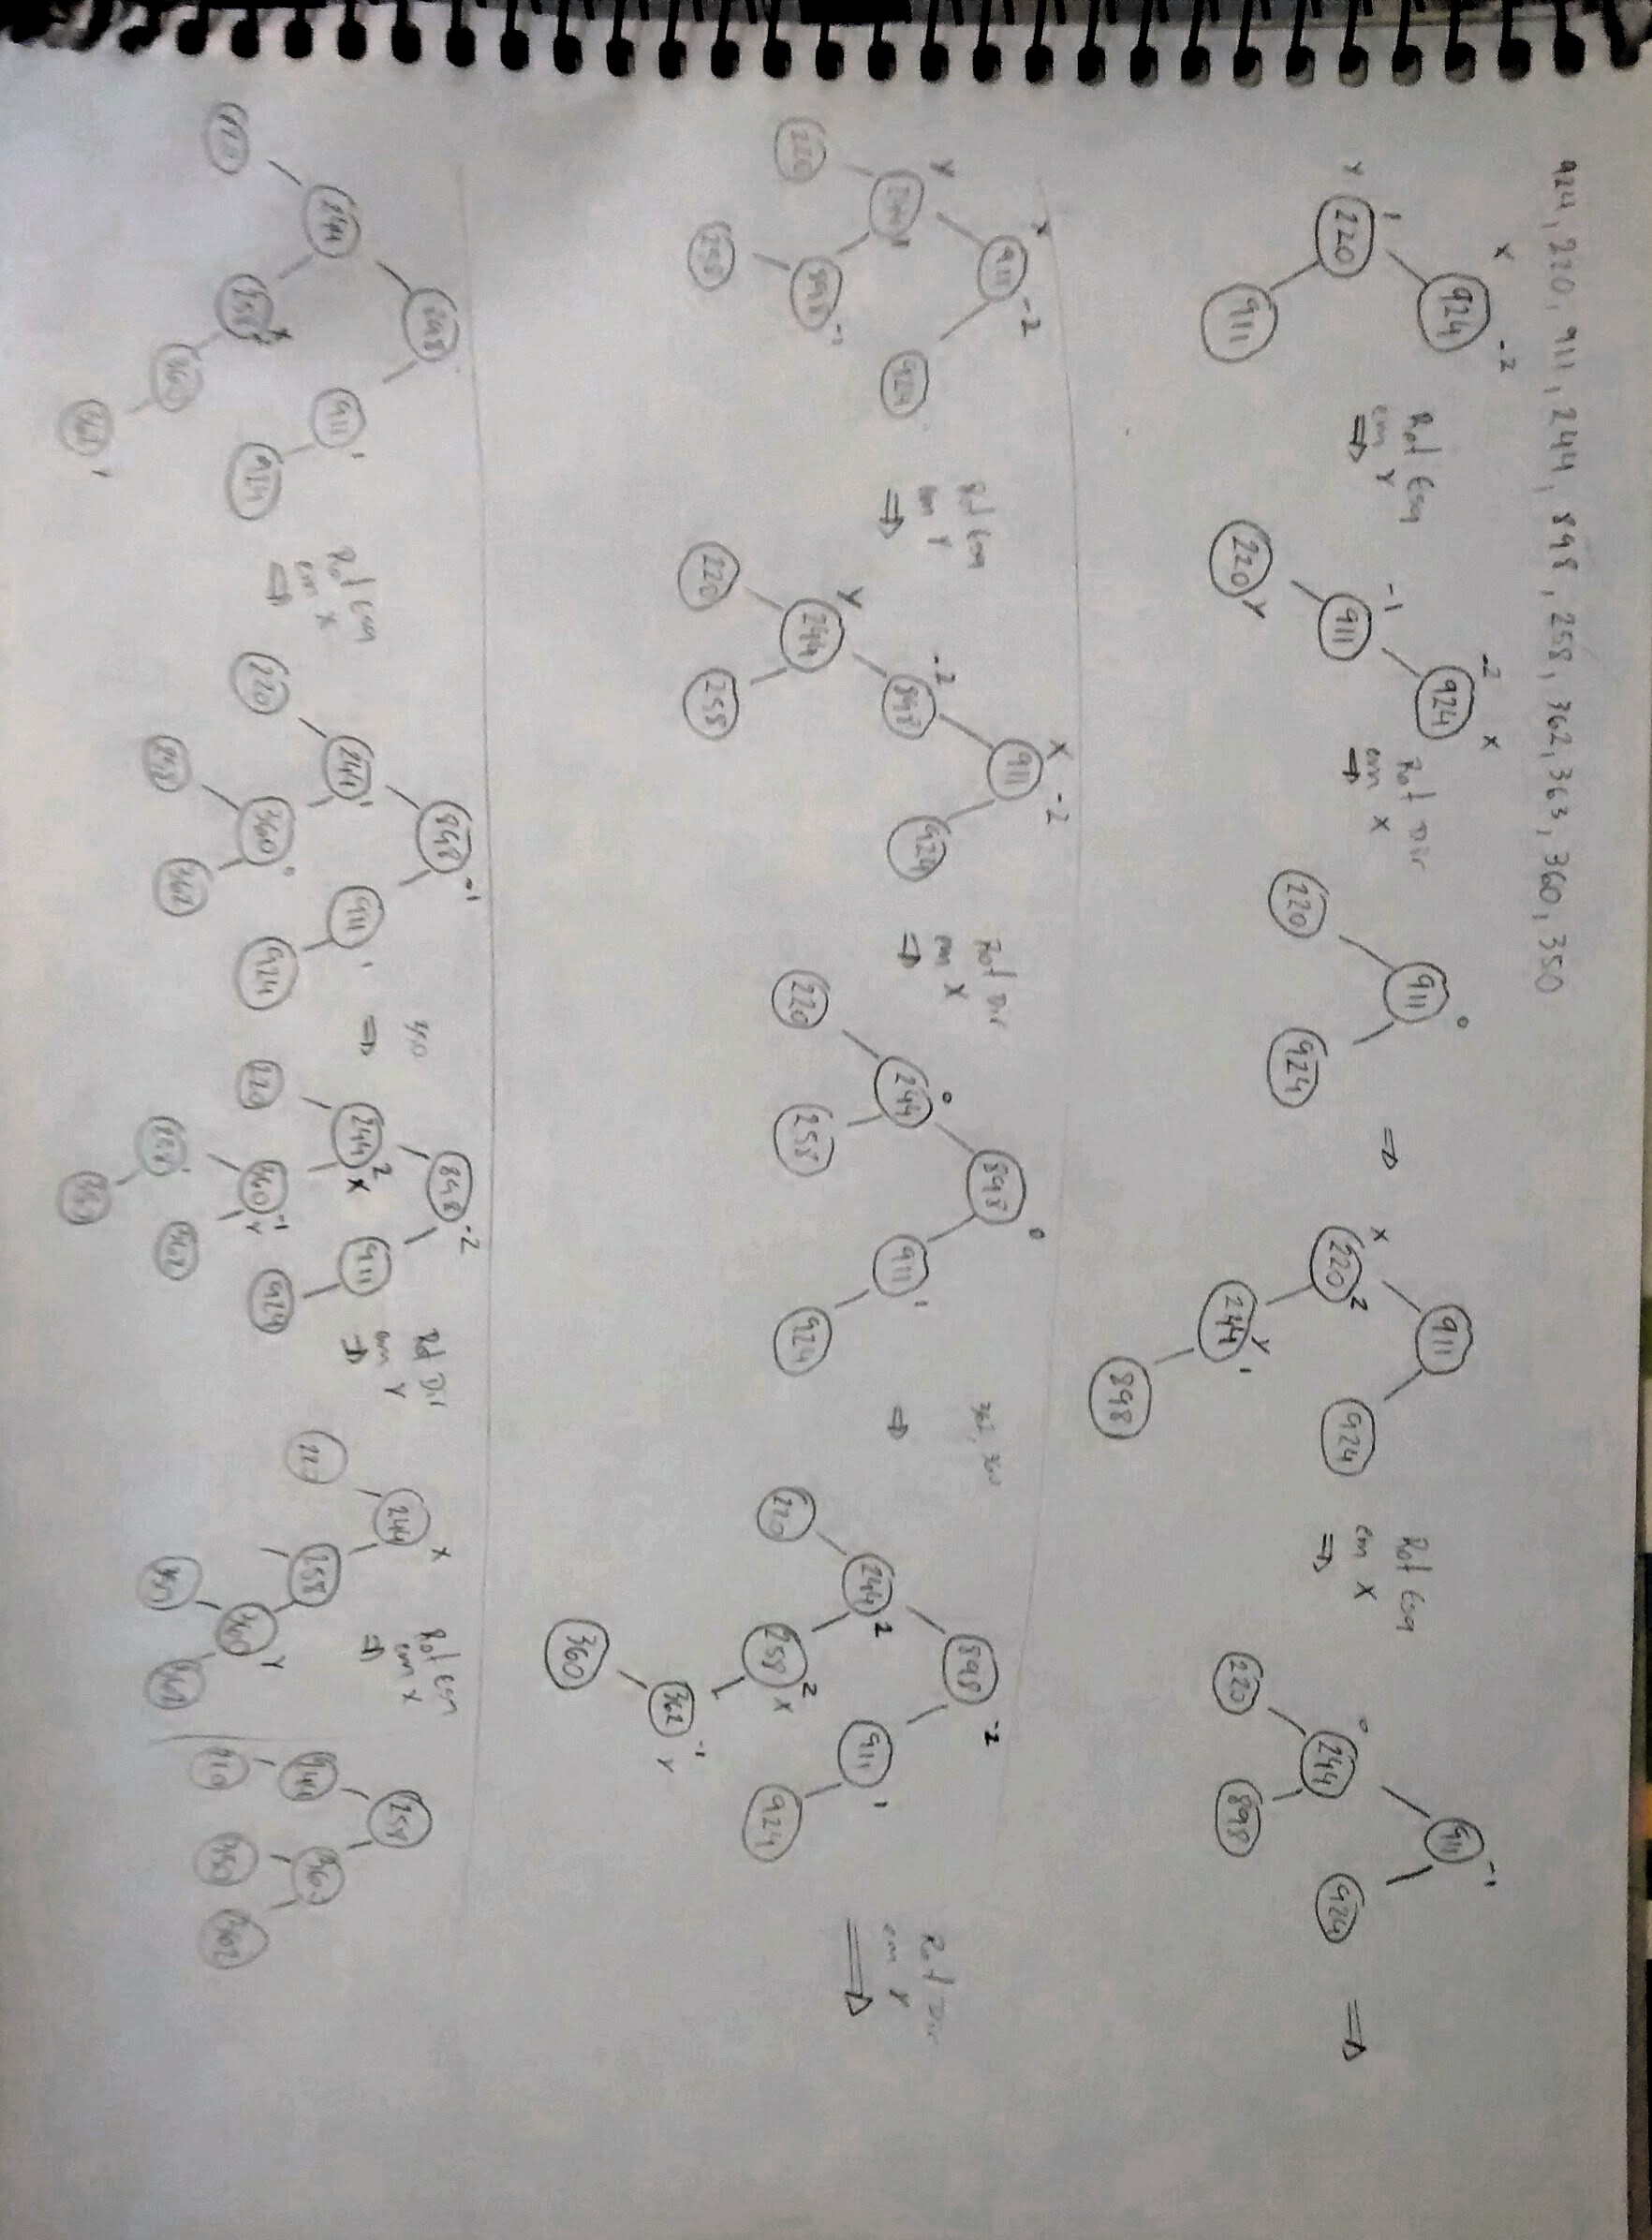 924, 220, 911, 244, 898, 258, 362, 363, 360, 350
X -2 924
1 Y 220
911
Rot Esq
em Y
-2 X 924
-1 911
220 Y
Rot Dir
em X
0 911
220 924
911
X 220 2 924
Y 244 1
898
Rot Esq
em X
911 -1
0 244 924
220 898
X 911 -2
Y 244 1 924
220 898 -1
258
Rot Esq
em Y
X -2 911
-2 898 924
Y 244
220 258
Rot Dir
em X
898 0
0 244 911 1
220 258 924
362, 360
898 -2
244 2 911 1
220 258 2 X 924
362 -1 Y
360
Rot Dir
em Y
898
244 911 1
220 258 924
360
362
Rot Esq
em X
898 -1
244 1 911 1
220 360 0 924
258 362
350
898 -2
244 2 X 911
220 360 -1 Y 924
258 362
350
Rot Dir
em Y
244 X
220 258
360 Y
350 362
Rot Esq
em X
258
244 360
220 350 362